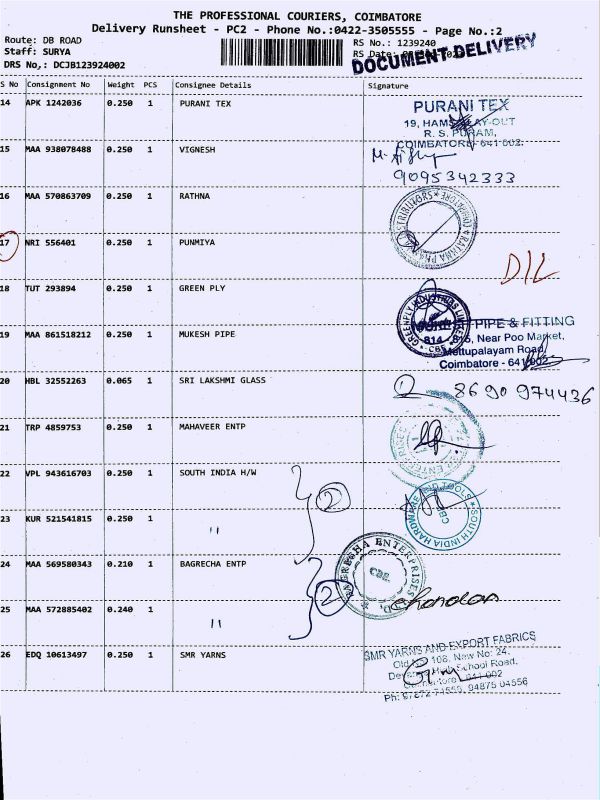 THE PROFESSIONAL COURIERS, COIMBATORE
Delivery Runsheet - PC2 - Phone No.:0422-3505555 - Page No.:2
Route: DB ROAD
RS No.: 1239240
Staff: SURYA
RS Date:
DOCUMENT DELIVERY
DRS No,: DCJB123924002
S No Consignment No Weight PCS Consignee Details Signature
14 APK 1242036 0.250 1 PURANI TEX
PURANI TEX
19, HAMS LAY-OUT
R. S. PURAM,
COIMBATORE - 641 002.
15 MAA 938078488 0.250 1 VIGNESH
9095342333
16 MAA 570863709 0.250 1 RATHNA
17 NRI 556401 0.250 1 PUNMIYA
D/L
18 TUT 293894 0.250 1 GREEN PLY
GREENPLY INDUSTRIES LIMITED
CBE
19 MAA 861518212 0.250 1 MUKESH PIPE
PIPE & FITTING
814 - 815, Near Poo Market,
Mettupalayam Road,
Coimbatore - 641 002
20 HBL 32552263 0.065 1 SRI LAKSHMI GLASS
8690974436
21 TRP 4859753 0.250 1 MAHAVEER ENTP
22 VPL 943616703 0.250 1 SOUTH INDIA H/W
2
SOUTH INDIA HARDWARE AND TOOLS
CBE
23 KUR 521541815 0.250 1 "
24 MAA 569580343 0.210 1 BAGRECHA ENTP
2
BAGRECHA ENTERPRISES
CBE.
Chandan
25 MAA 572885402 0.240 1 "
26 EDQ 10613497 0.250 1 SMR YARNS
SMR YARNS AND EXPORT FABRICS
Old No 108, New No: 24,
High School Road,
641 002
Ph: 97872 94875 04556